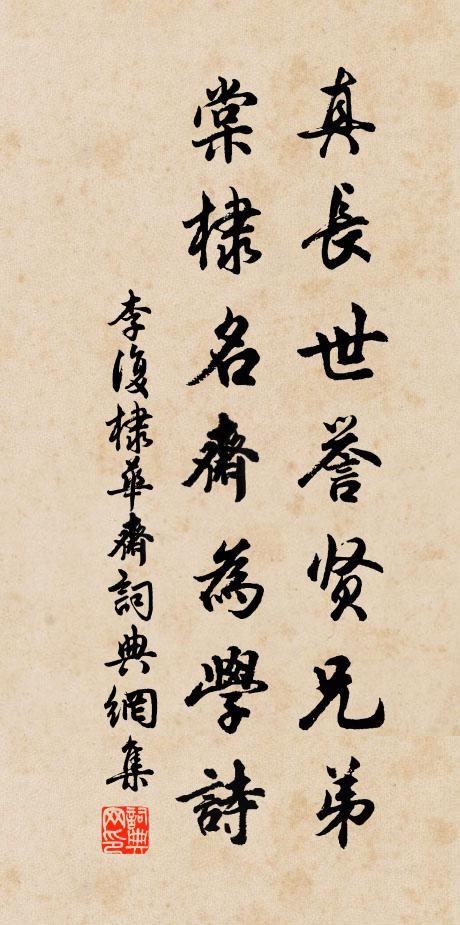 真長世誉贤兄弟
棠棣名齋為學詩
李復棣華齋詞典網集
詞典网印